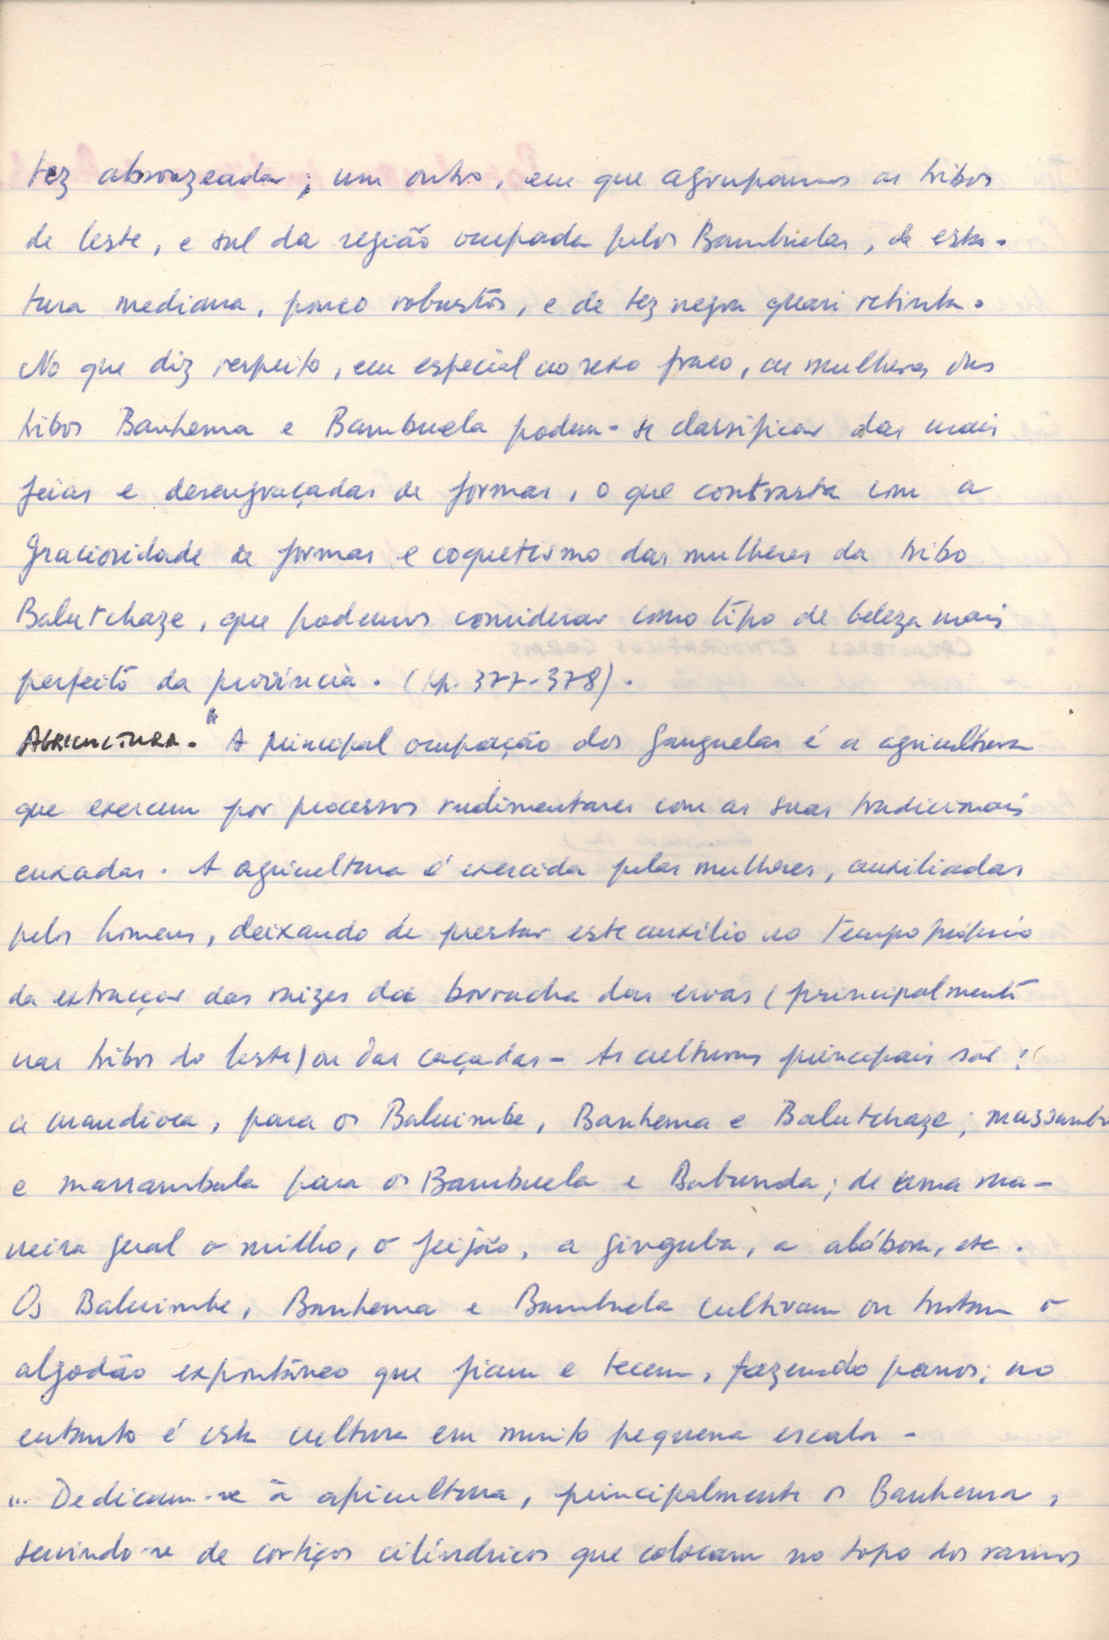 tez abronzeada; um outro, em que agrupamos as tribos
de leste, e sul da região ocupada pelos Bambuelas, de esta-
tura mediana, pouco robustos, e de tez negra quasi retinta.
No que diz respeito, em especial ao sexo fraco, as mulheres das
tribos Banhema e Bambuela podem-se classificar das mais
feias e desengraçadas de formas, o que contrasta com a
graciosidade de formas e coquetismo das mulheres da tribo
Balutchaze, que podemos considerar como tipo de beleza mais
perfeito da província. (pp. 377-378).
AGRICULTURA. "A principal ocupação dos Ganguelas é a agricultura
que exercem por processos rudimentares com as suas tradicionais
enxadas. A agricultura é exercida pelas mulheres, auxiliadas
pelos homens, deixando de prestar este auxílio no tempo próprio
da extracção das raizes da borracha das ervas (principalmente
nas tribos do leste) ou das caçadas. As culturas principais são:
a mandioca, para os Baluimbe, Banhema e Balutchaze; massambu
e massambala para os Bambuela e Babunda; de uma ma-
neira geral o milho, o feijão, a ginguba, a abóbora, etc.
Os Baluimbe, Banhema e Bambuela cultivam ou tratam o
algodão expontâneo que fiam e tecem, fazendo panos; no
entanto é esta cultura em muito pequena escala.
... Dedicam-se à apicultura, principalmente os Banhema,
servindo-se de cortiços cilíndricos que colocam no topo dos ramos